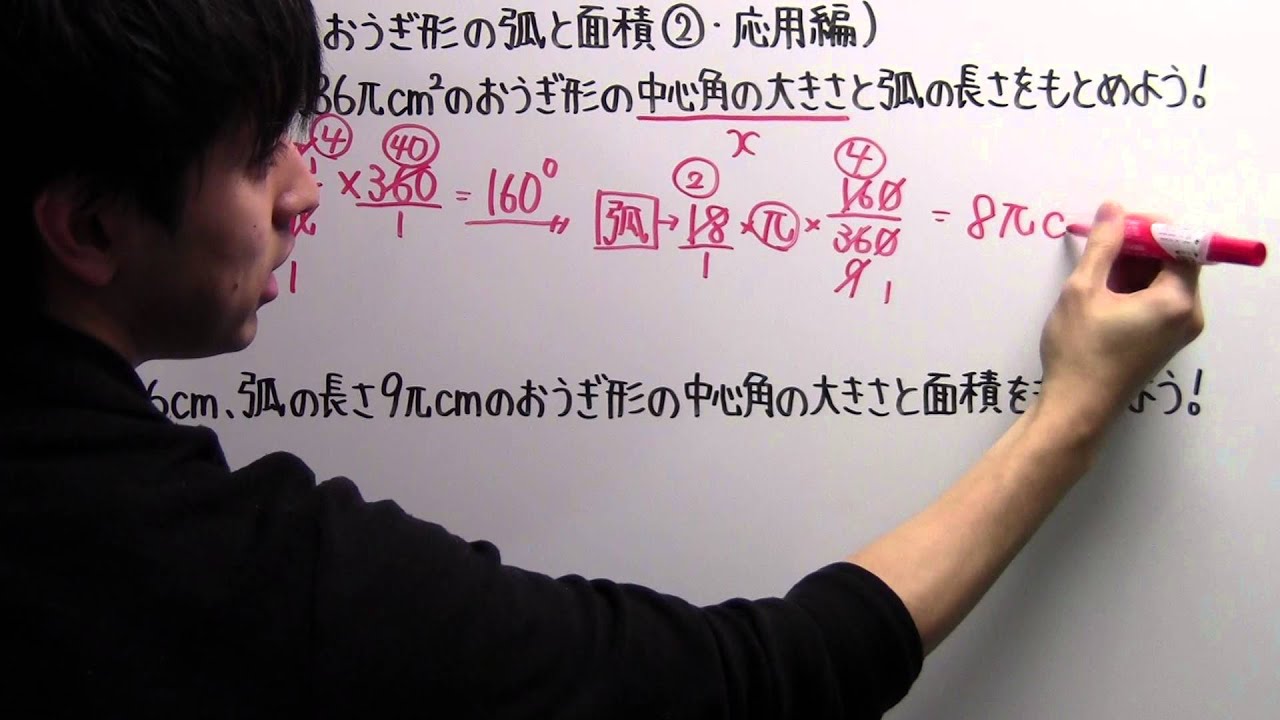 おうぎ形の弧と面積②・応用編)
36πcm²のおうぎ形の中心角の大きさと弧の長さをもとめよう!
x
④ 40 ② ④
×360/1 = 160° 弧→18/1×π×160/360 = 8πc
1 9 1
6cm、弧の長さ9πcmのおうぎ形の中心角の大きさと面積を う!